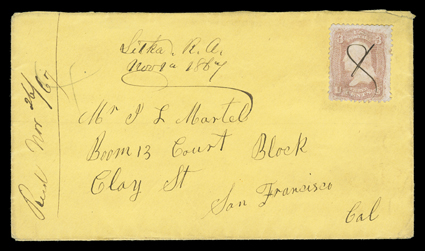 Sitka. R. A.
Nov 1st 1867
Mr J L Martel
Room 13 Court Block
Clay St
San Francisco
Cal
Recd Nov 26/67
3 3